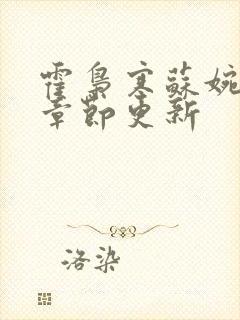 霍梟寒蘇婉
章節更新
洛染